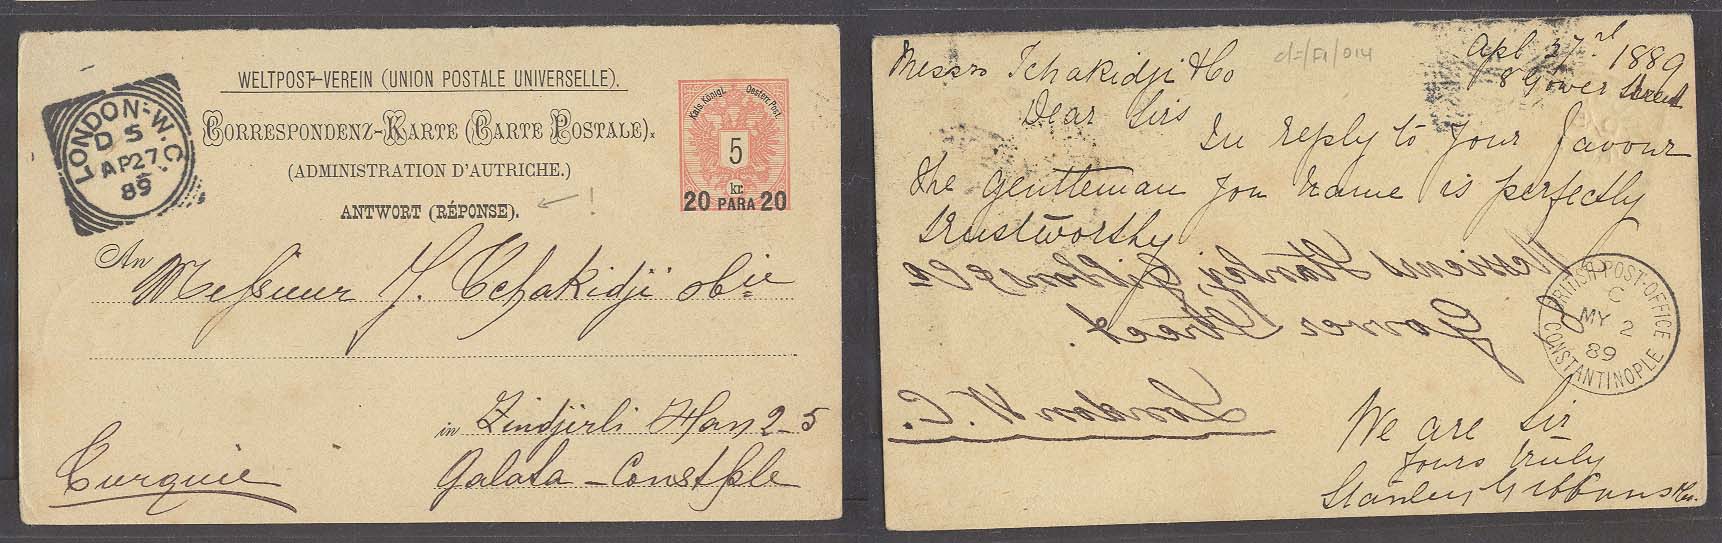 WELTPOST-VEREIN (UNION POSTALE UNIVERSELLE).
CORRESPONDENZ-KARTE (CARTE POSTALE).
(ADMINISTRATION D'AUTRICHE.)
ANTWORT (RÉPONSE). !
LONDON·W.C.
D 5
AP 27
89
Kais. Königl. Oesterr. Post.
5
kr.
20 PARA 20
An Messieur J. Tchakidji & Cie
in Zindjirli Han 2-5
Galata - Constple
Turquie
Apl 27 1889
8 Gower Street
Messrs Tchakidji & Co
Dear Sirs
In reply to your favour
the gentleman you name is perfectly
trustworthy
Messieurs Stanley Gibbons & Co
Gower Street.
London W. C.
BRITISH POST-OFFICE
C
MY 2
89
CONSTANTINOPLE
We are Sir
Yours truly
Stanley Gibbons